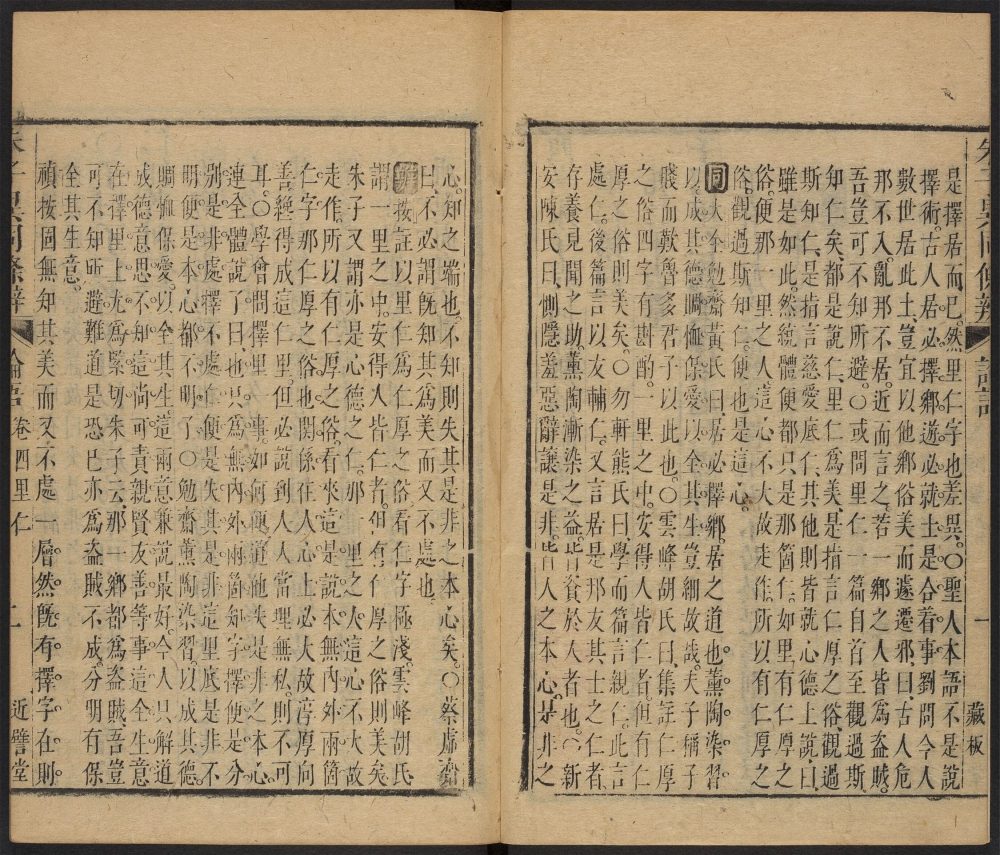 是擇居而已然里仁字也差異○聖人本語不是說
擇術古人居必擇鄉遊必就士是合着事劉問今人
數世居此土豈宜以他鄉俗美而遽遷邪曰古人危
邦不入亂邦不居近而言之若一鄉之人皆為盜賊
吾豈可不知所避○或問里仁一篇自首至觀過斯
知仁矣都是說仁里仁為美是指言仁厚之俗觀過
斯知仁是指言慈愛底仁其他則皆就心德上說曰
雖是如此然統體便都只是那箇仁如里有仁厚之
俗便那一里之人這心不大故走作所以有仁厚之
俗觀過斯知仁便也是這心
同大全勉齋黃氏曰居必擇鄉居之道也薰陶染習
以成其德賙恤保愛以全其生豈細故哉夫子稱子
賤而歎魯多君子以此也○雲峰胡氏曰集註仁厚
之俗四字有斟酌一里之中安得人皆仁者但有仁
厚之俗則美矣○勿軒熊氏曰學而篇言親仁此言
處仁後篇言以友輔仁又言居是邦友其士之仁者
存養見聞之助薰陶漸染之益皆資於人者也○新
安陳氏曰惻隱羞惡辭讓是非皆人之本心是非之
藏板
心知之端也不知則失其是非之本心矣○蔡虛齋
曰不必謂既知其為美而又不處也
辨按註以里仁為仁厚之俗看仁字極淺雲峰胡氏
謂一里之中安得人皆仁者但有仁厚之俗則美矣
朱子又謂亦是心德之仁那一里之人這心不大故
走作所以有仁厚之俗看來這是說本無內外兩箇
仁字那仁厚之俗也關係在人心上必大故淳厚向
善纔得成這仁里但必說到人人當理無私則不可
耳○學曾問擇里一事如何便道他失是非之本心
連全體說了曰也只為無內外兩箇知字擇便是分
別是非處擇不處仁便是失其是非這里底是非不
明便是本心都不明了○勉齋薰陶染習以成其德
賙恤保愛以全其生這兩意兼說最好今人只解道
成德意思不知這尚可責親賢友善等事這全生意
在擇里上尤為緊切朱子云那一鄉都為盜賊吾豈
可不知所避難道是恐已亦為盜賊不成分明有保
全其生意
禎按圖無知其美而又不處一層然既有擇字在則
論語 卷四里仁 二 近譬堂